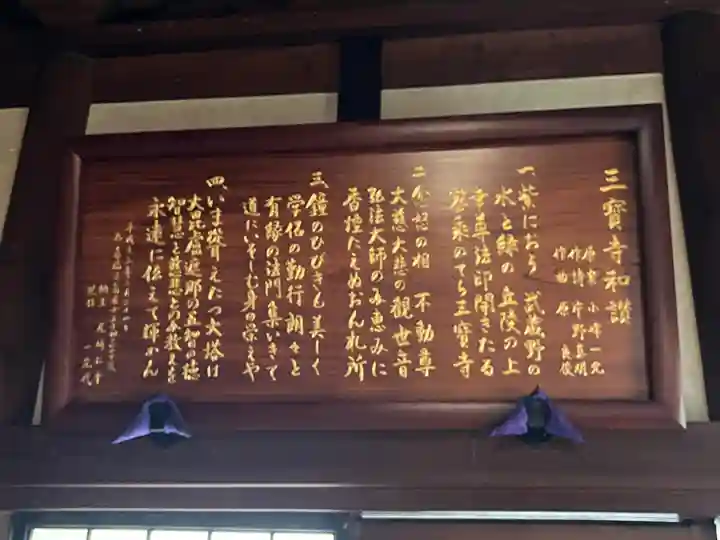 三寳寺和讃
原案 小峰一允
作詩 市野真明
作曲 原 良俊
一、紫におう 武蔵野の
水と緑の丘陵の上
幸尊法印開きたる
密乗のてら三寳寺
二、忿怒の相 不動尊
大慈大悲の観世音
弘法大師のみ恵みに
香煙たえぬおん札所
三、鐘のひびきも美しく
学侶の勤行朗々と
有縁の法門集いきて
道にいそしむ身の栄えや
四、いま聳えたつ大塔は
大毘盧遮那の五智の徳
智慧と慈悲との
永遠に伝えて輝かん